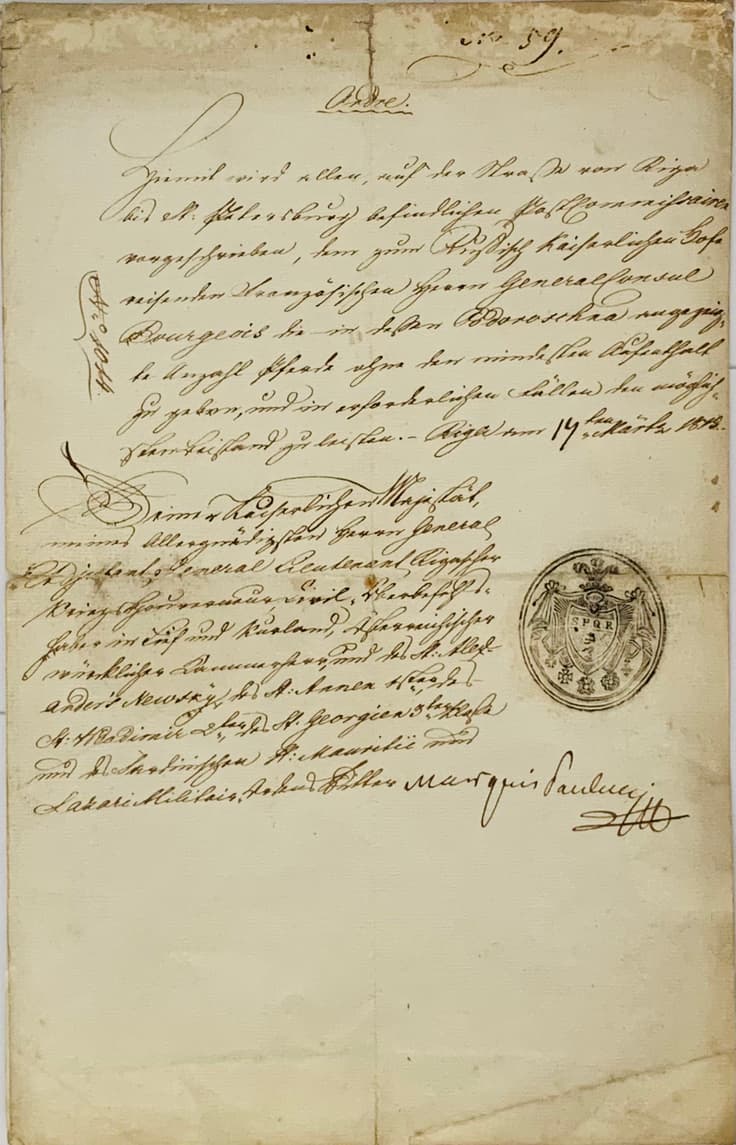 No 59.
Ordre.
Hiemit wird allen, auf der Straße von Riga
bis St: Petersburg befindlichen PostCommissairen
vorgeschrieben, dem zum Rußisch Kaiserlichen Hofe
reisenden Französischen Herrn GeneralConsul
Bourgeois die in dessen Podoroschna angezeig-
te Anzahl Pferde ohne den mindesten Aufenthalt
zu geben, und in erforderlichen Fällen den möglich-
sten Beistand zu leisten. – Riga den 14ten Märtz
No 1014.
Seiner Kaiserlichen Majestät,
meines Allergnädigsten Herrn General
Adjutant, General Lieutenant Rigascher
Kriegs Gouverneur, Civil Oberbefehls-
haber in Lief und Kurland, Österreichischer
würklicher Kammerherr und des St: Alex-
anders Newsky, des St: Annen 1ster, des
St: Wladimir 2ter, des St. Georgien 3ter Klasse
und des Sardinischen St: Mauritii und
Lazari Militair Ordens Ritter Marquis Paulucci
SPQR